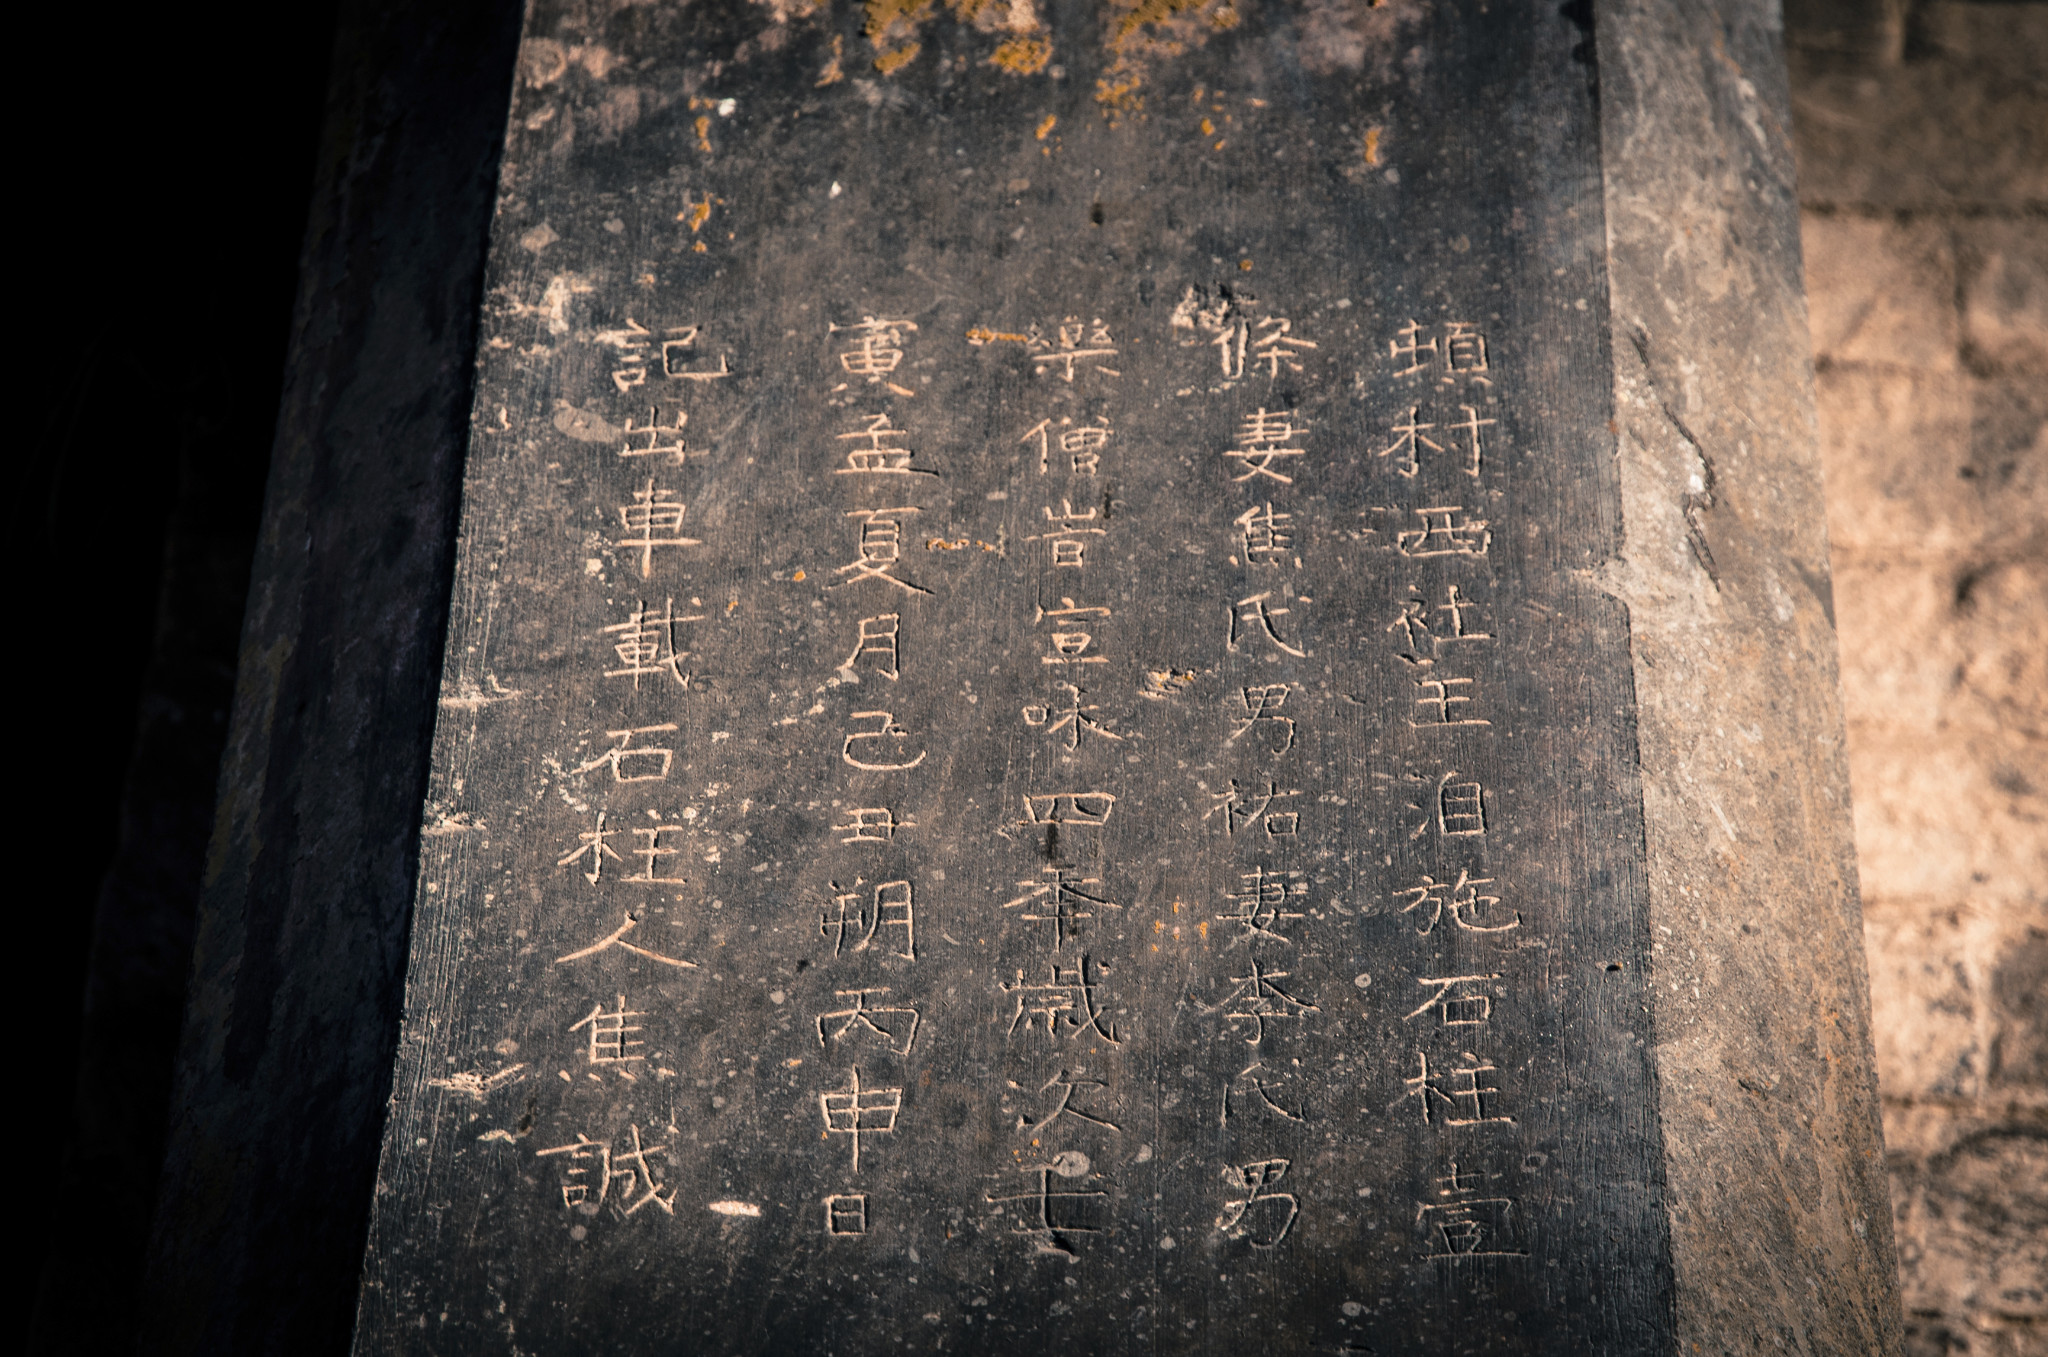 頓村西社王洎施石柱壹
條妻焦氏男祐妻李氏男
樂僧旹宣咊四秊歲次壬
寅孟夏月己丑朔丙申日
記出車載石柱人焦誠